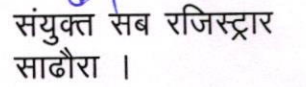 संयुक्त सब रजिस्ट्रार
साढौरा ।